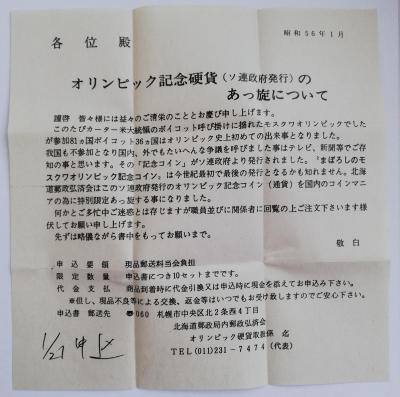 昭和56年1月
各位殿
オリンピック記念硬貨(ソ連政府発行)の
あっ旋について
謹啓 皆々様には益々のご清栄のこととお慶び申し上げます。
このたびカーター米大統領のボイコット呼び掛けに揺れたモスクワオリンピックでした
が参加81ヵ国ボイコット36ヵ国はオリンピック史上初めての出来事となりました。
我国も不参加となり国内、外でもたいへんな争議を呼びました事はテレビ、新聞等でご存
知の事と思います。その「記念コイン」がソ連政府より発行されました。“まぼろしのモ
スクワオリンピック記念コイン”は今世紀最初で最後の発行となるかも知れません。北海
道郵政弘済会はこのソ連政府発行のオリンピック記念コイン(通貨)を国内のコインマニ
アの為に特別限定あっ旋する事になりました。
何かとご多忙中ご迷惑とは存じますが職員並びに関係者に回覧の上ご注文下さいます様
伏してお願い申し上げます。
先ずは略儀ながら書中をもってお願いまで。
敬白
申込要領 現品郵送料当会負担
限定数量 申込書につき10セットまでです。
代金支払 商品到着時に代金引換又は申込時に現金を添えてお申込み下さい。
※但し、現品不良等による交換、返金等はいつでもお受け致しますのでご安心下さい。
申込書 郵送先 〠060 札幌市中央区北2条西4丁目
北海道郵政局内郵政弘済会
オリンピック硬貨取扱係 迄
TEL(011)231-7474(代表)
1/27 申込